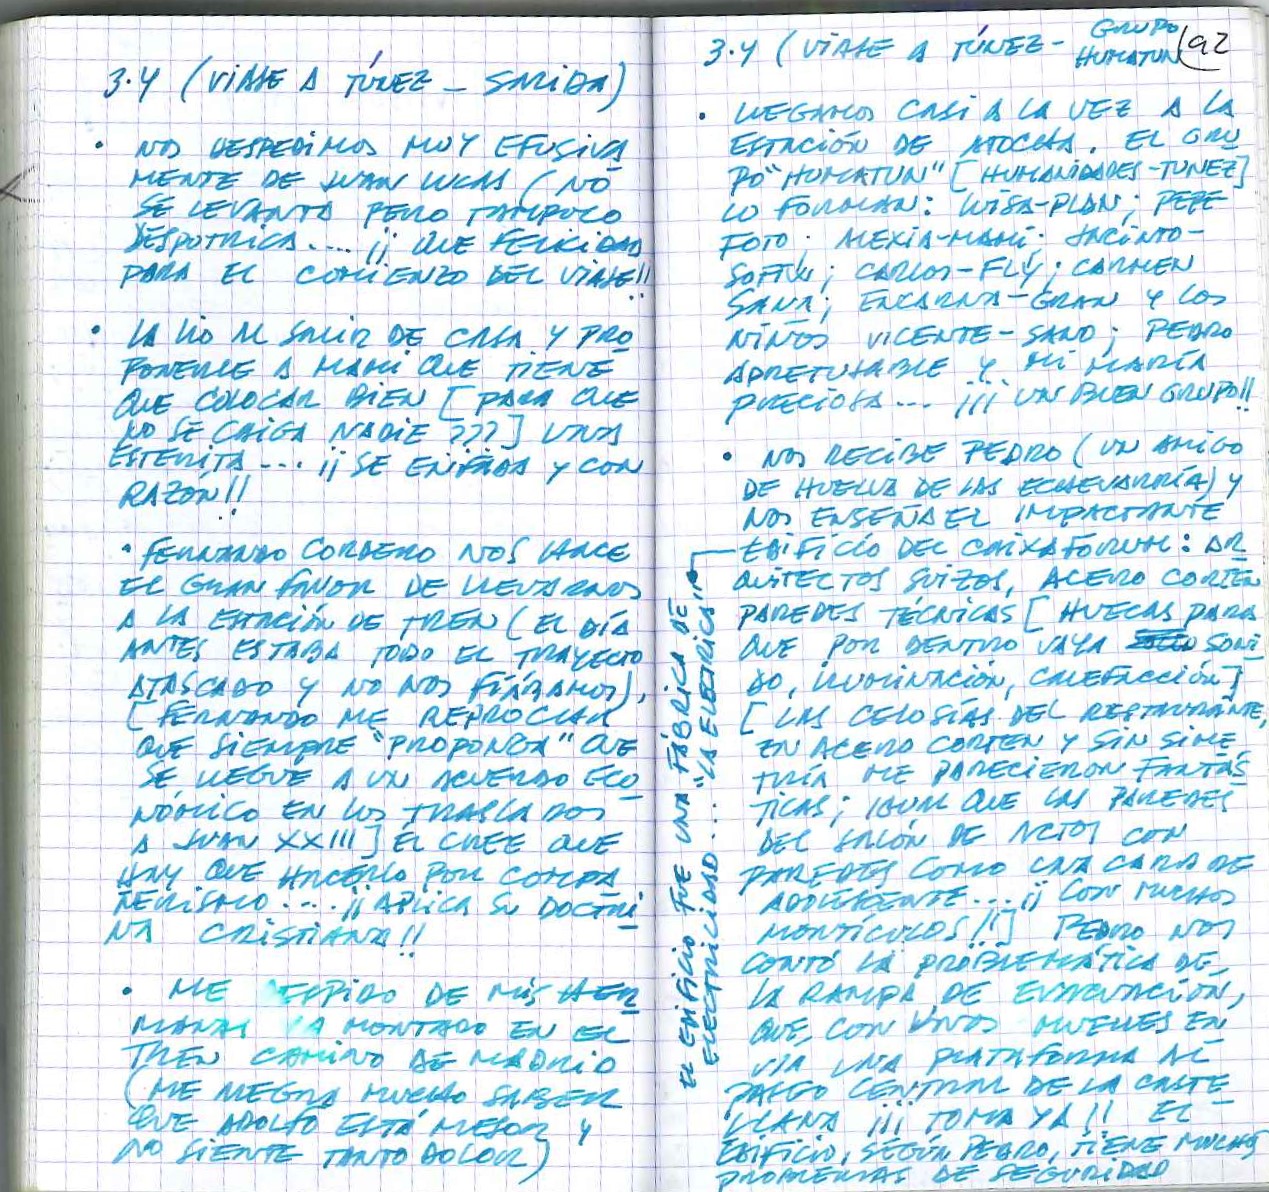 3.4 (VIAJE A TÚNEZ - SALIDA)
• NOS DESPEDIMOS MUY EFUSIVA
MENTE DE JUAN LUCAS (NO
SE LEVANTA PERO TAMPOCO
DESPOTRICA.... ¡¡ QUE FELICIDAD
PARA EL COMIENZO DEL VIAJE!!
• LA LIO AL SALIR DE CASA Y PRO
PONERLE A MAMI QUE TIENE
QUE COLOCAR BIEN [PARA QUE
NO SE CAIGA NADIE ???] UNA
ESTERITA... ¡¡ SE ENFADA Y CON
RAZÓN!!
• FERNANDO CORDERO NOS HACE
EL GRAN FAVOR DE LLEVARNOS
A LA ESTACIÓN DE TREN (EL DÍA
ANTES ESTABA TODO EL TRAYECTO
ATASCADO Y NO NOS FIÁBAMOS),
[FERNANDO ME REPROCHA
QUE SIEMPRE "PROPONGA" QUE
SE LLEGUE A UN ACUERDO ECO
NÓMICO EN LOS TRASLADOS
A JUAN XXIII] ÉL CREE QUE
HAY QUE HACERLO POR COMPA
ÑERISMO.... ¡¡ APLICA SU DOCTRI
NA CRISTIANA!!
• ME DESPIDO DE MIS HER
MANAS YA MONTADO EN EL
TREN CAMINO DE MADRID
(ME ALEGRA MUCHO SABER
QUE ADOLFO ESTÁ MEJOR Y
NO SIENTE TANTO DOLOR)
3.4 (VIAJE A TÚNEZ - GRUPO
HUMATUN) 92
• LLEGAMOS CASI A LA VEZ A LA
ESTACIÓN DE ATOCHA. EL GRU
PO "HUMATUN" [HUMANIDADES-TUNEZ]
LO FORMAN: LUISA-PLAN; PEPE
FOTO; ALEXIA-MAMI; JACINTO-
CARLOS-FLY; CARMEN
SANA; ENCARNA-GRAN Y LOS
NIÑOS VICENTE-SANO; PEDRO
Y MI MARÍA
PRECIOSA... ¡¡¡ UN BUEN GRUPO!!
• NOS RECIBE PEDRO (UN AMIGO
DE HUELVA DE LAS ECHEVARRÍA) Y
NOS ENSEÑA EL IMPACTANTE
EDIFICIO DEL CAIXAFORUM: AR
QUITECTOS SUIZOS, ACERO CORTEN
PAREDES TÉCNICAS [HUECAS PARA
QUE POR DENTRO VAYA SONI
DO, ILUMINACIÓN, CALEFACCIÓN]
[LAS CELOSÍAS DEL RESTAURANTE,
EN ACERO CORTEN Y SIN SIME
TRÍA ME PARECIERON FANTÁS
TICAS; IGUAL QUE LAS PAREDES
DEL SALÓN DE ACTOS CON
PAREDES COMO UNA CARA DE
ADOLESCENTE...¡¡ CON MUCHOS
MONTÍCULOS!!] PEDRO NOS
CONTÓ LA PROBLEMÁTICA DE
LA RAMPA DE EVACUACIÓN,
QUE, CON UNOS MUELLES EN
VIA UNA PLATAFORMA AL
PASEO CENTRAL DE LA CASTE
LLANA ¡¡¡ TOMA YA!! EL
EDIFICIO, SEGÚN PEDRO, TIENE MUCHOS
PROBLEMAS DE SEGURIDAD
EL EDIFICIO FUE UNA FÁBRICA DE
ELECTRICIDAD... "LA ELECTRICA"